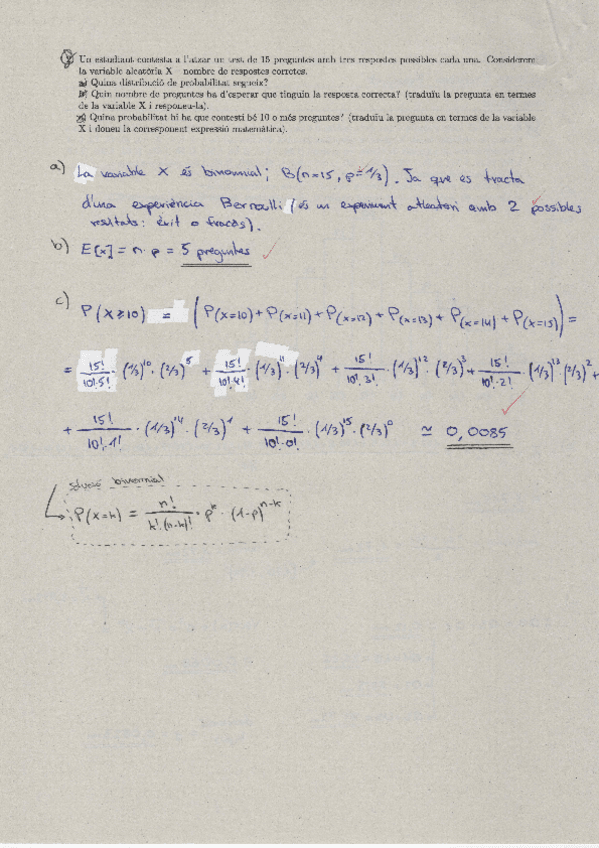 Un estudiant contesta a l'atzar un test de 15 preguntes amb tres respostes possibles cada una. Considerem
la variable aleatòria X = nombre de respostes corretes.
a) Quina distribució de probabilitat segueix?
b) Quin nombre de preguntes ha d'esperar que tinguin la resposta correcta? (traduïu la pregunta en termes
de la variable X i responeu-la).
c) Quina probabilitat hi ha que contesti bé 10 o més preguntes? (traduïu la pregunta en termes de la variable
X i doneu la corresponent expressió matemàtica).
a) La variable X és binomial; B(n=15, p=1/3). Ja que es tracta
d'una experiència Bernoulli (és un experiment atleatori amb 2 possibles
resultats: èxit o fracàs).
b) E[x] = n·p = 5 preguntes
c) P(X≥10) = (P(x=10) + P(x=11) + P(x=12) + P(x=13) + P(x=14) + P(x=15)) =
= 15!/10!·5! · (1/3)^10 · (2/3)^5 + 15!/10!·4! · (1/3)^11 · (2/3)^4 + 15!/10!·3! · (1/3)^12 · (2/3)^3 + 15!/10!·2! · (1/3)^13 · (2/3)^2 +
+ 15!/10!·1! · (1/3)^14 · (2/3)^1 + 15!/10!·0! · (1/3)^15 · (2/3)^0 ≃ 0,0085
binomial
P(x=k) = n!/k!·(n-k)! · p^k · (1-p)^n-k